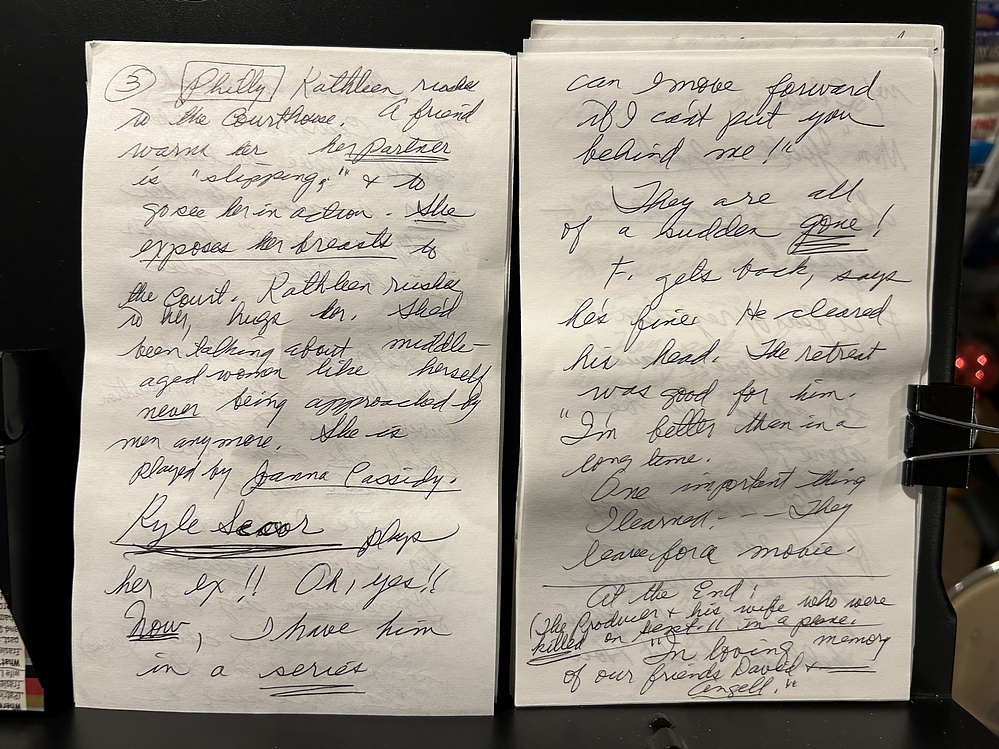 ③ Philly Kathleen rushes
to the Courthouse. A friend
warns her her partner
is "slipping," & to
go see her in action. She
exposes her breasts to
the Court. Kathleen rushes
to her, hugs her. She'd
been talking about middle-
aged women like herself
never being approached by
men anymore. She is
played by Joanna Cassidy.
Kyle Secor plays
her ex!! Oh, yes!!
Now, I have him
in a series
can I move forward
if I can't put you
behind me!"
They are all
of a sudden gone!
F. gets back, says
he's fine. He cleared
his head. The retreat
was good for him.
"I'm better than in a
long time.
One important thing
I learned. - - - They
leave for a movie.
At the End:
(The Producer & his wife who were
killed on Sept. 11 in a plane.
"In loving memory
of our friends David &
Angell."